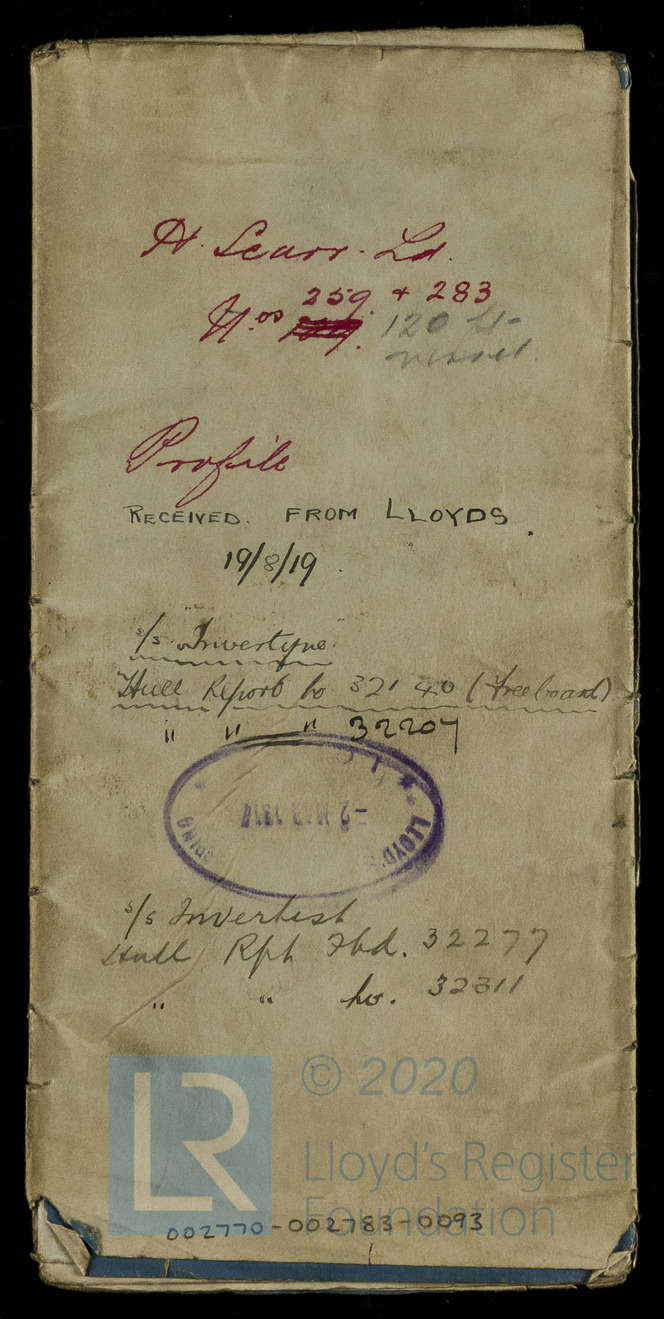 H. Scarr. Ld.
259 + 283
Nos 120 ft
vessel.
Profile
RECEIVED. FROM LLOYDS.
19/8/19.
s/s "Invertyne"
Hull Report No 32140 (freeboard)
" " " 32207
LLOYD'S
s/s Invertest
Hull Rpt Fbd. 32277
" " No. 32311
LR
© 2020
Lloyd's Register
Foundation
002770-002783-0093